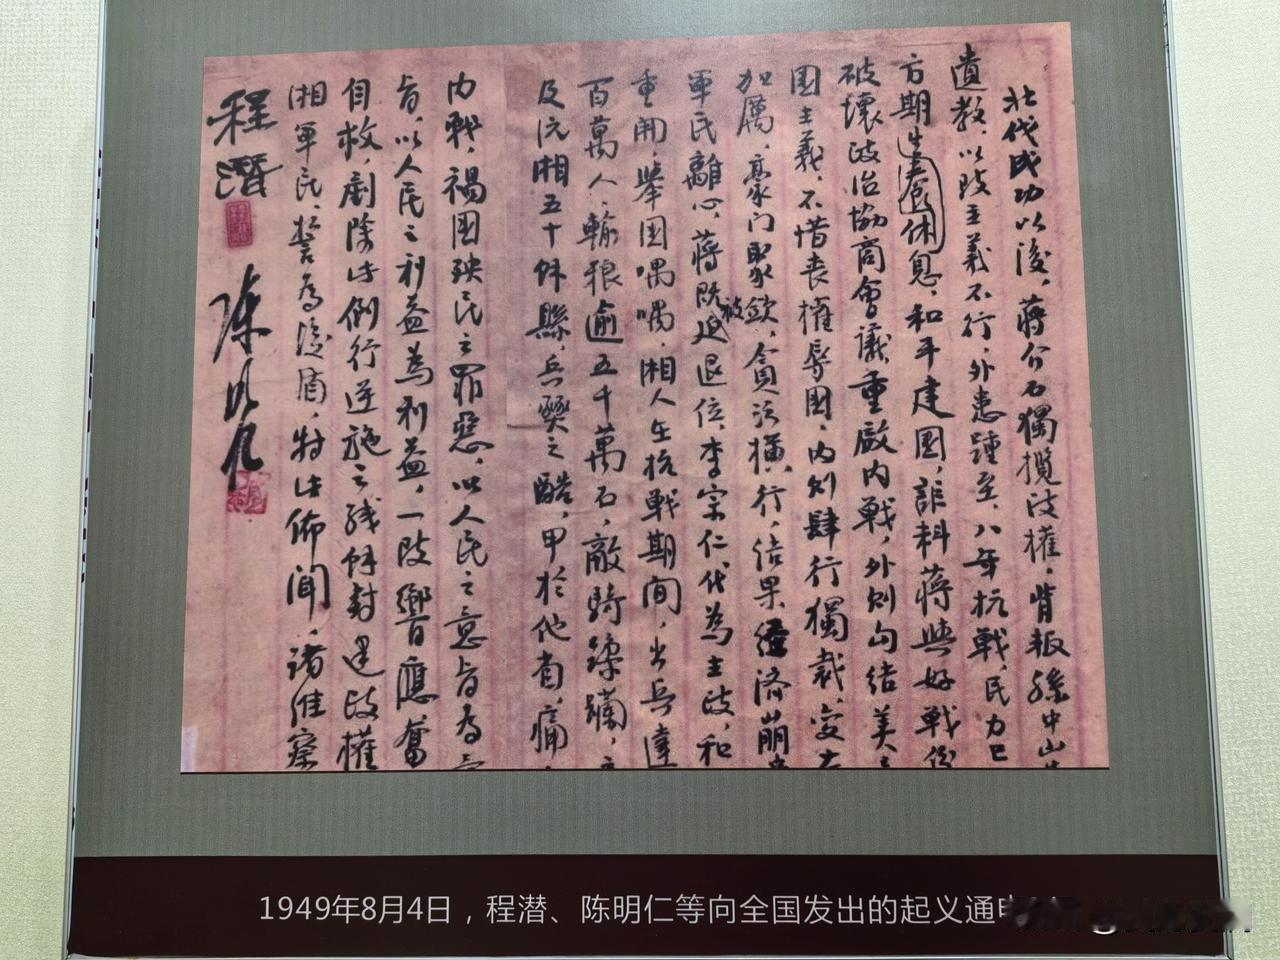 北伐成功以後，蔣介石獨攬政權，背叛孫中山
遺教，以致主義不行，外患踵至，八年抗戰，民力已
方期生養休息，和平建國，詎料蔣與好戰份
破壞政治協商會議，重啟內戰，外則勾結美
國主義，不惜喪權辱國，內則肆行獨裁，变本
加厲，豪门聚歛，貪污橫行，结果經济崩
軍民離心，蔣既被迫退位，李宗仁代為主政，和
重開，舉国喁喁，湘人在抗戰期间，出兵達
百萬人，輸粮逾五千萬石，敵騎蹂躪，
及沅湘五十餘縣，兵燹之酷，甲於他省，痛
内戰，禍國殃民之罪惡，以人民之意旨為意
旨，以人民之利益為利益，一致響應，奮
自救，剷除倒行逆施之残餘封建政權
湘軍民，誓為後盾，特此佈聞，诸維察
程潛
陳明仁
1949年8月4日，程潜、陈明仁等向全国发出的起义通电